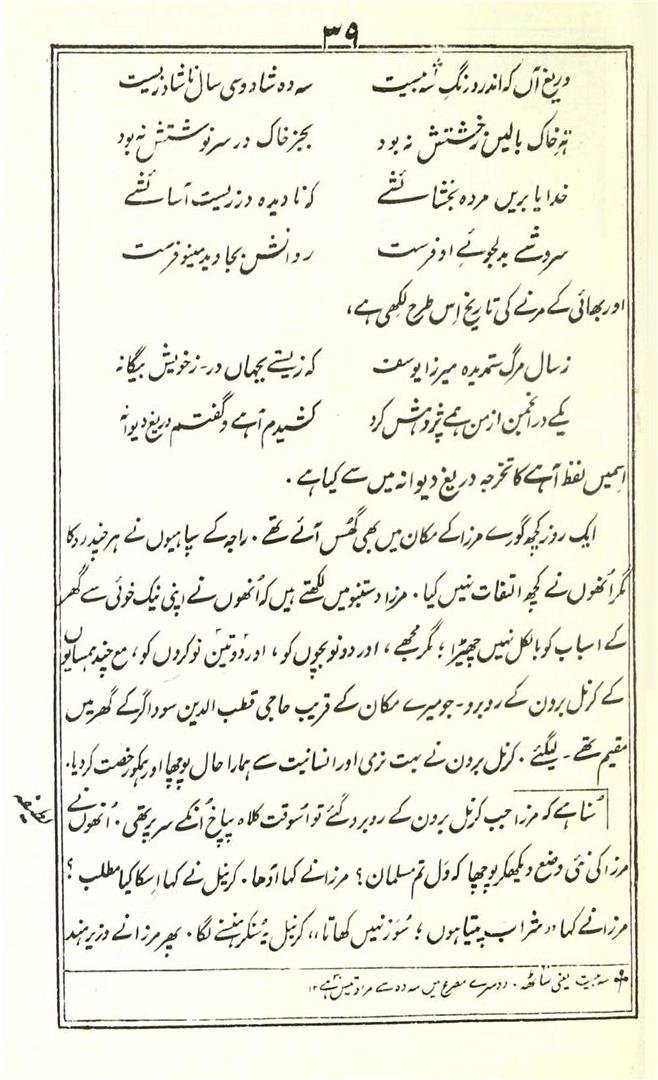 ۳۹
دریغ آں کہ اندر درنگِ سہ بیست سہ دہ شاد و سی سال ناشاد زیست
تہِ خاک بالیں زخشتش نہ بود بجز خاک در سرنوشتش نہ بود
خدایا بریں مردہ بخشائشے کہ نادیدہ در زیست آسائشے
سروشے بدلجوئےِ او فرست روانش بجاوید مینو فرست
اور بھائی کے مرنے کی تاریخ اِس طرح لکھی ہے،
ز سال مرگ ستمدیدہ میرزا یوسف کہ زیستے بجہاں در ۔ ز خویش بیگانہ
یکے در انجمن از من ہمے پژوہش کرد کشیدم آہے و گفتم دریغ دیوانہ
اِسمیں لفظ آہے کا تخرجہ دریغ دیوانہ میں سے کیا ہے ۔
ایک روز کچھ گورے مرزا کے مکان میں بھی گھُس آئے تھے ۔ راجہ کے سپاہیوں نے ہر چند روکا
مگر اُنھوں نے کچھ التفات نہیں کیا ۔ مرزا دستنبو میں لکھتے ہیں کہ اُنھوں نے اپنی نیک خوئی سے گھر
کے اسباب کو بالکل نہیں چھیڑا ؛ مگر مجھے ، اور دونو بچوں کو ، اور دو تین نوکروں کو ، مع چند ہمسایوں
کے کرنل برون کے روبرو ۔ جو میرے مکان کے قریب حاجی قطب الدین سوداگر کے گھر میں
مقیم تھے ۔ لیگئے ۔ کرنل برون نے بہت نرمی اور انسانیت سے ہمارا حال پوچھا اور ہمکو رخصت کر دیا ۔
لطیفہ
سُنا ہے کہ مرزا جب کرنل برون کے روبرو گئے تو اُسوقت کلاہ پپاخ اُنکے سر پر تھی ۔ اُنھوں نے
مرزا کی نئی وضع دیکھکر پوچھا کہ وَل تم مسلمان ؟ مرزا نے کہا آدھا ۔ کرنیل نے کہا اِسکا کیا مطلب ؟
مرزا نے کہا ،، شراب پیتا ہوں ؛ سُوَر نہیں کھاتا ،، کرنیل یہ سُنکر ہنسنے لگا ۔ پھر مرزا نے وزیر ہند
سہ بیست یعنی ساٹھ ۔ دوسرے مصرع میں سہ دہ سے مراد تیس ہے ۱۲